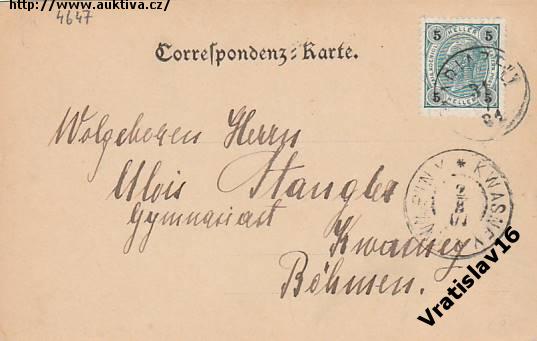 http://www.auktiva.cz/
4647
Correspondenz-Karte.
5 HELLER 5
5 HELLER 5
Wolgeboren Herrn
Alois Stangler
Gymnasiast
Kwasney
Böhmen.
KWASNEY
Vratislav16